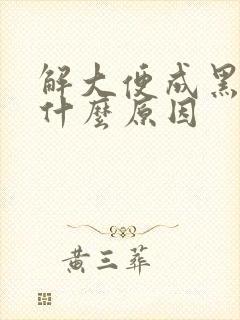 解大便成黑
什麼原因
黄三葬